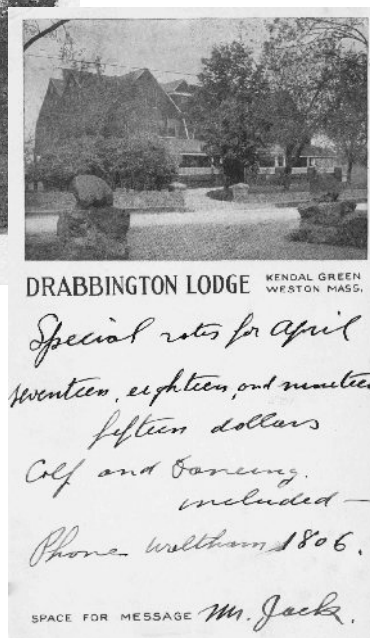 DRABBINGTON LODGE
KENDAL GREEN
WESTON MASS.
Special rates for April
seventeen, eighteen, and nineteen
fifteen dollars
Golf and Dancing.
included —
Phone Waltham 1806.
SPACE FOR MESSAGE Mr. Jack.